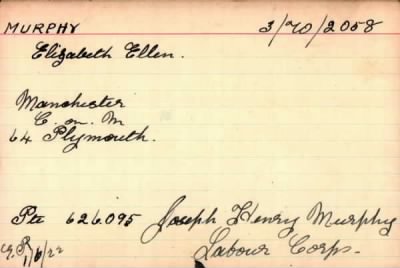 MURPHY 3/70/2058
Elizabeth Ellen.
Manchester
C. on. M
64 Plymouth.
Pte 626095 Joseph Henry Murphy
Labour Corps.
/6/22